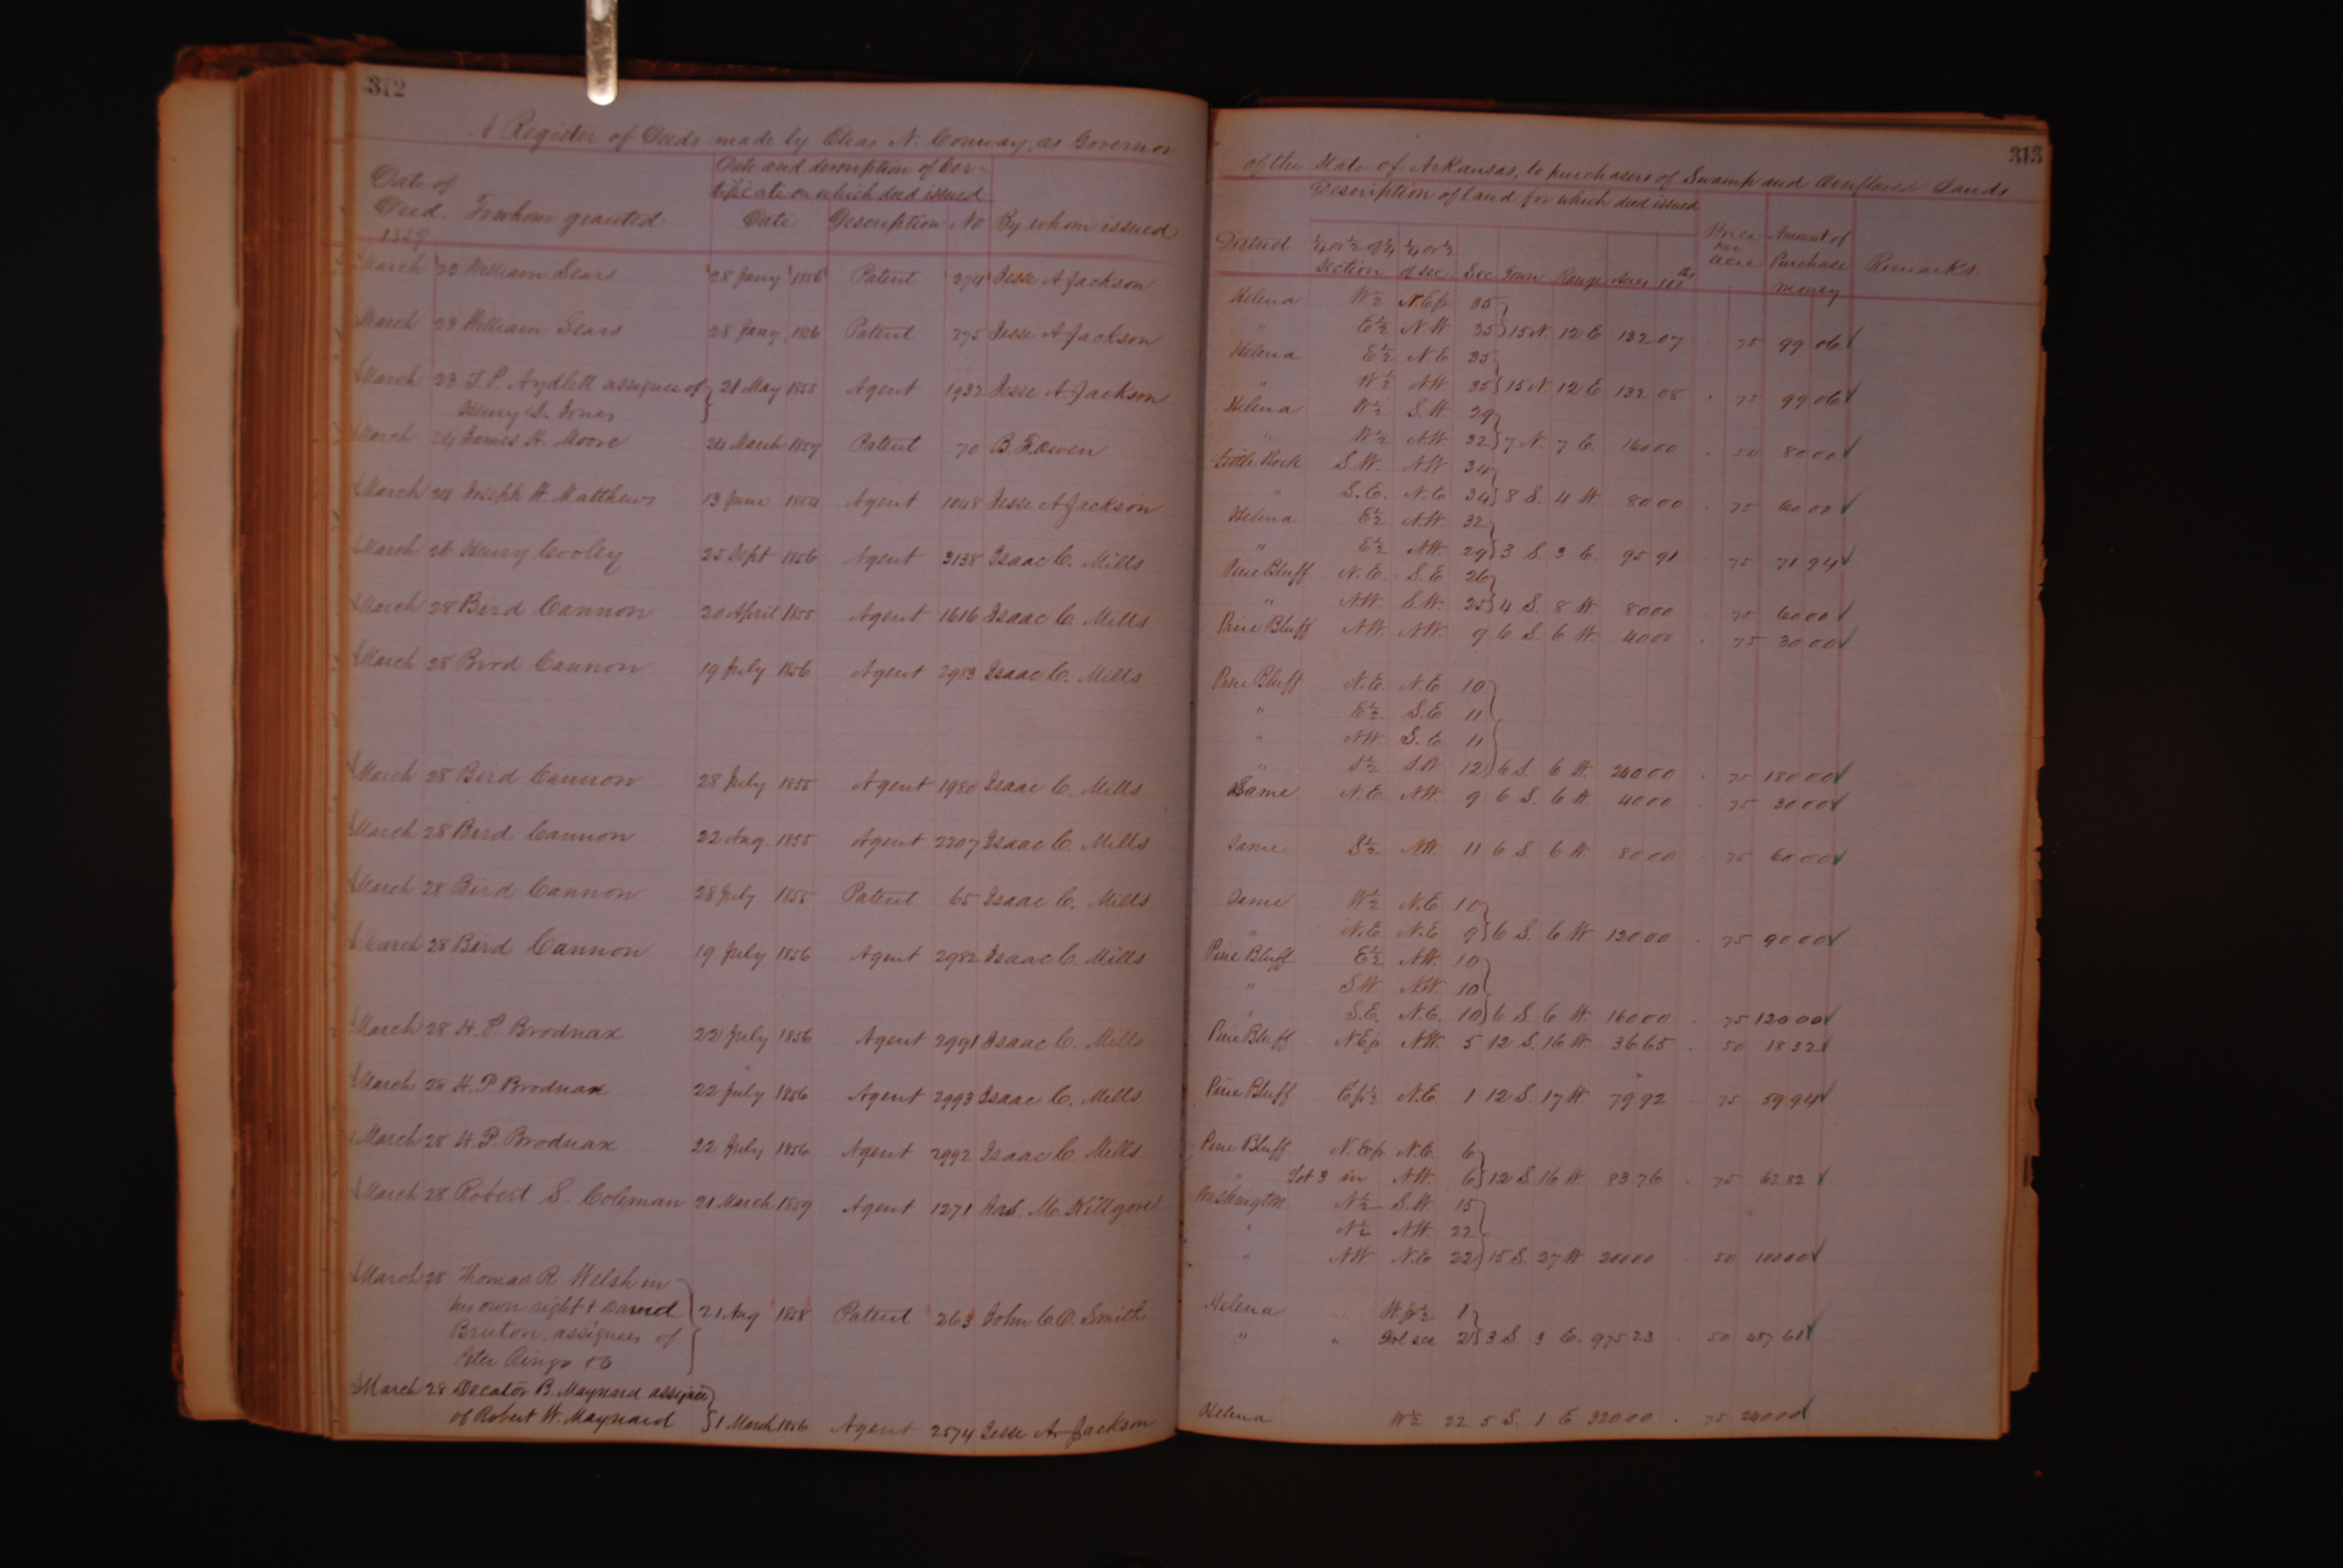 312
A Register of Deeds made by Elias N. Conway, as Governor
Date and description of cer-
Date of tificate on which deed issued
Deed. To whom granted Date Description No By whom issued
1859
March 23 William Sears 28 Jany 1856 Patent 274 Jesse A Jackson
March 23 William Sears 28 Jany 1856 Patent 275 Jesse A Jackson
March 23 T. P. Aydlett assignee of } 21 May 1855 Agent 1932 Jesse A Jackson
Henry L. Jones
March 24 James H. Moore 24 March 1859 Patent 70 B. F. Owen
March 24 Joseph W. Matthews 13 June 1854 Agent 1048 Jesse A Jackson
March 26 Henry Cooley 25 Sept 1856 Agent 3138 Isaac C. Mills
March 28 Bird Cannon 20 April 1855 Agent 1616 Isaac C. Mills
March 28 Bird Cannon 19 July 1856 Agent 2983 Isaac C. Mills
March 28 Bird Cannon 28 July 1855 Agent 1980 Isaac C. Mills
March 28 Bird Cannon 22 Aug. 1855 Agent 2207 Isaac C. Mills
March 28 Bird Cannon 28 July 1855 Patent 65 Isaac C. Mills
March 28 Bird Cannon 19 July 1856 Agent 2982 Isaac C. Mills
March 28 H. P. Brodnax 22 July 1856 Agent 2991 Isaac C. Mills
March 28 H. P. Brodnax 22 July 1856 Agent 2993 Isaac C. Mills
March 28 H. P. Brodnax 22 July 1856 Agent 2992 Isaac C. Mills
March 28 Robert S. Coleman 21 March 1859 Agent 1271 Jas. M. Killgore
March 28 Thomas R Welsh in
his own right & David } 21 Aug 1858 Patent 263 John C. O. Smith
Bruton, assignees of
Peter Ringo &c
March 28 Decator B. Maynard assignee
of Robert W. Maynard } 1 March 1856 Agent 2574 Jesse A. Jackson
313
of the State of Arkansas, to purchasers of Swamp and Overflowed Lands
Description of land for which deed issued
District ¼ or ½ of ¼ ¼ or ½ Price per acre Amount of
section of sec Sec Town Range Acres 100ths Purchase money Remarks.
Helena W½ N.E fr 35
" E½ N.W 35 } 15 N. 12 E 132 07 . 75 99 06 ✓
Helena E½ N.E 35
" W½ N.W 35 } 15 N. 12 E 132 08 . 75 99 06 ✓
Helena W½ S.W. 29
" W½ N.W. 32 } 7 N. 7 E. 160 00 . 50 80 00 ✓
Little Rock S.W. N.W 34
" S.E. N.E 34 } 8 S. 4 W. 80 00 . 75 60 00 ✓
Helena E½ N.W. 32
" E½ N.W. 29 } 3 S. 3 E. 95 91 75 71 94 ✓
Pine Bluff N.E. S.E 26
" N.W. S.W. 25 } 4 S. 8 W. 80 00 75 60 00 ✓
Pine Bluff N.W. N.W. 9 6 S. 6 W. 40 00 . 75 30 00 ✓
Pine Bluff N.E. N.E 10
" E½ S.E 11
" N.W. S.E 11
" S½ S.W. 12 } 6 S. 6 W. 240 00 . 75 180 00 ✓
Same N.E. N.W. 9 6 S. 6 W. 40 00 . 75 30 00 ✓
Same S½ N.W. 11 6 S. 6 W. 80 00 . 75 60 00 ✓
Same W½ N.E 10
" N.E. N.E 9 } 6 S. 6 W 120 00 . 75 90 00 ✓
Pine Bluff E½ N.W. 10
" S.W. N.W. 10
" S.E. N.E. 10 } 6 S. 6 W. 160 00 . 75 120 00 ✓
Pine Bluff N.E fr N.W. 5 12 S. 16 W. 36 65 . 50 18 32 ✓
Pine Bluff E fr ½ N.E. 1 12 S. 17 W. 79 92 . 75 59 94 ✓
Pine Bluff N.E fr N.E. 6
" Lot 3 in N.W. 6 } 12 S. 16 W. 83 76 . 75 62 82 ✓
Washington N½ S.W. 15
" N½ N.W. 22
" N.W. N.E 22 } 15 S. 27 W 200 00 . 50 100 00 ✓
Helena W. fr ½ 1
" " Frl sec 2 } 3 S. 3 E. 975 23 . 50 487 61 ✓
Helena W½ 22 5 S. 1 E 320 00 . 75 240 00 ✓